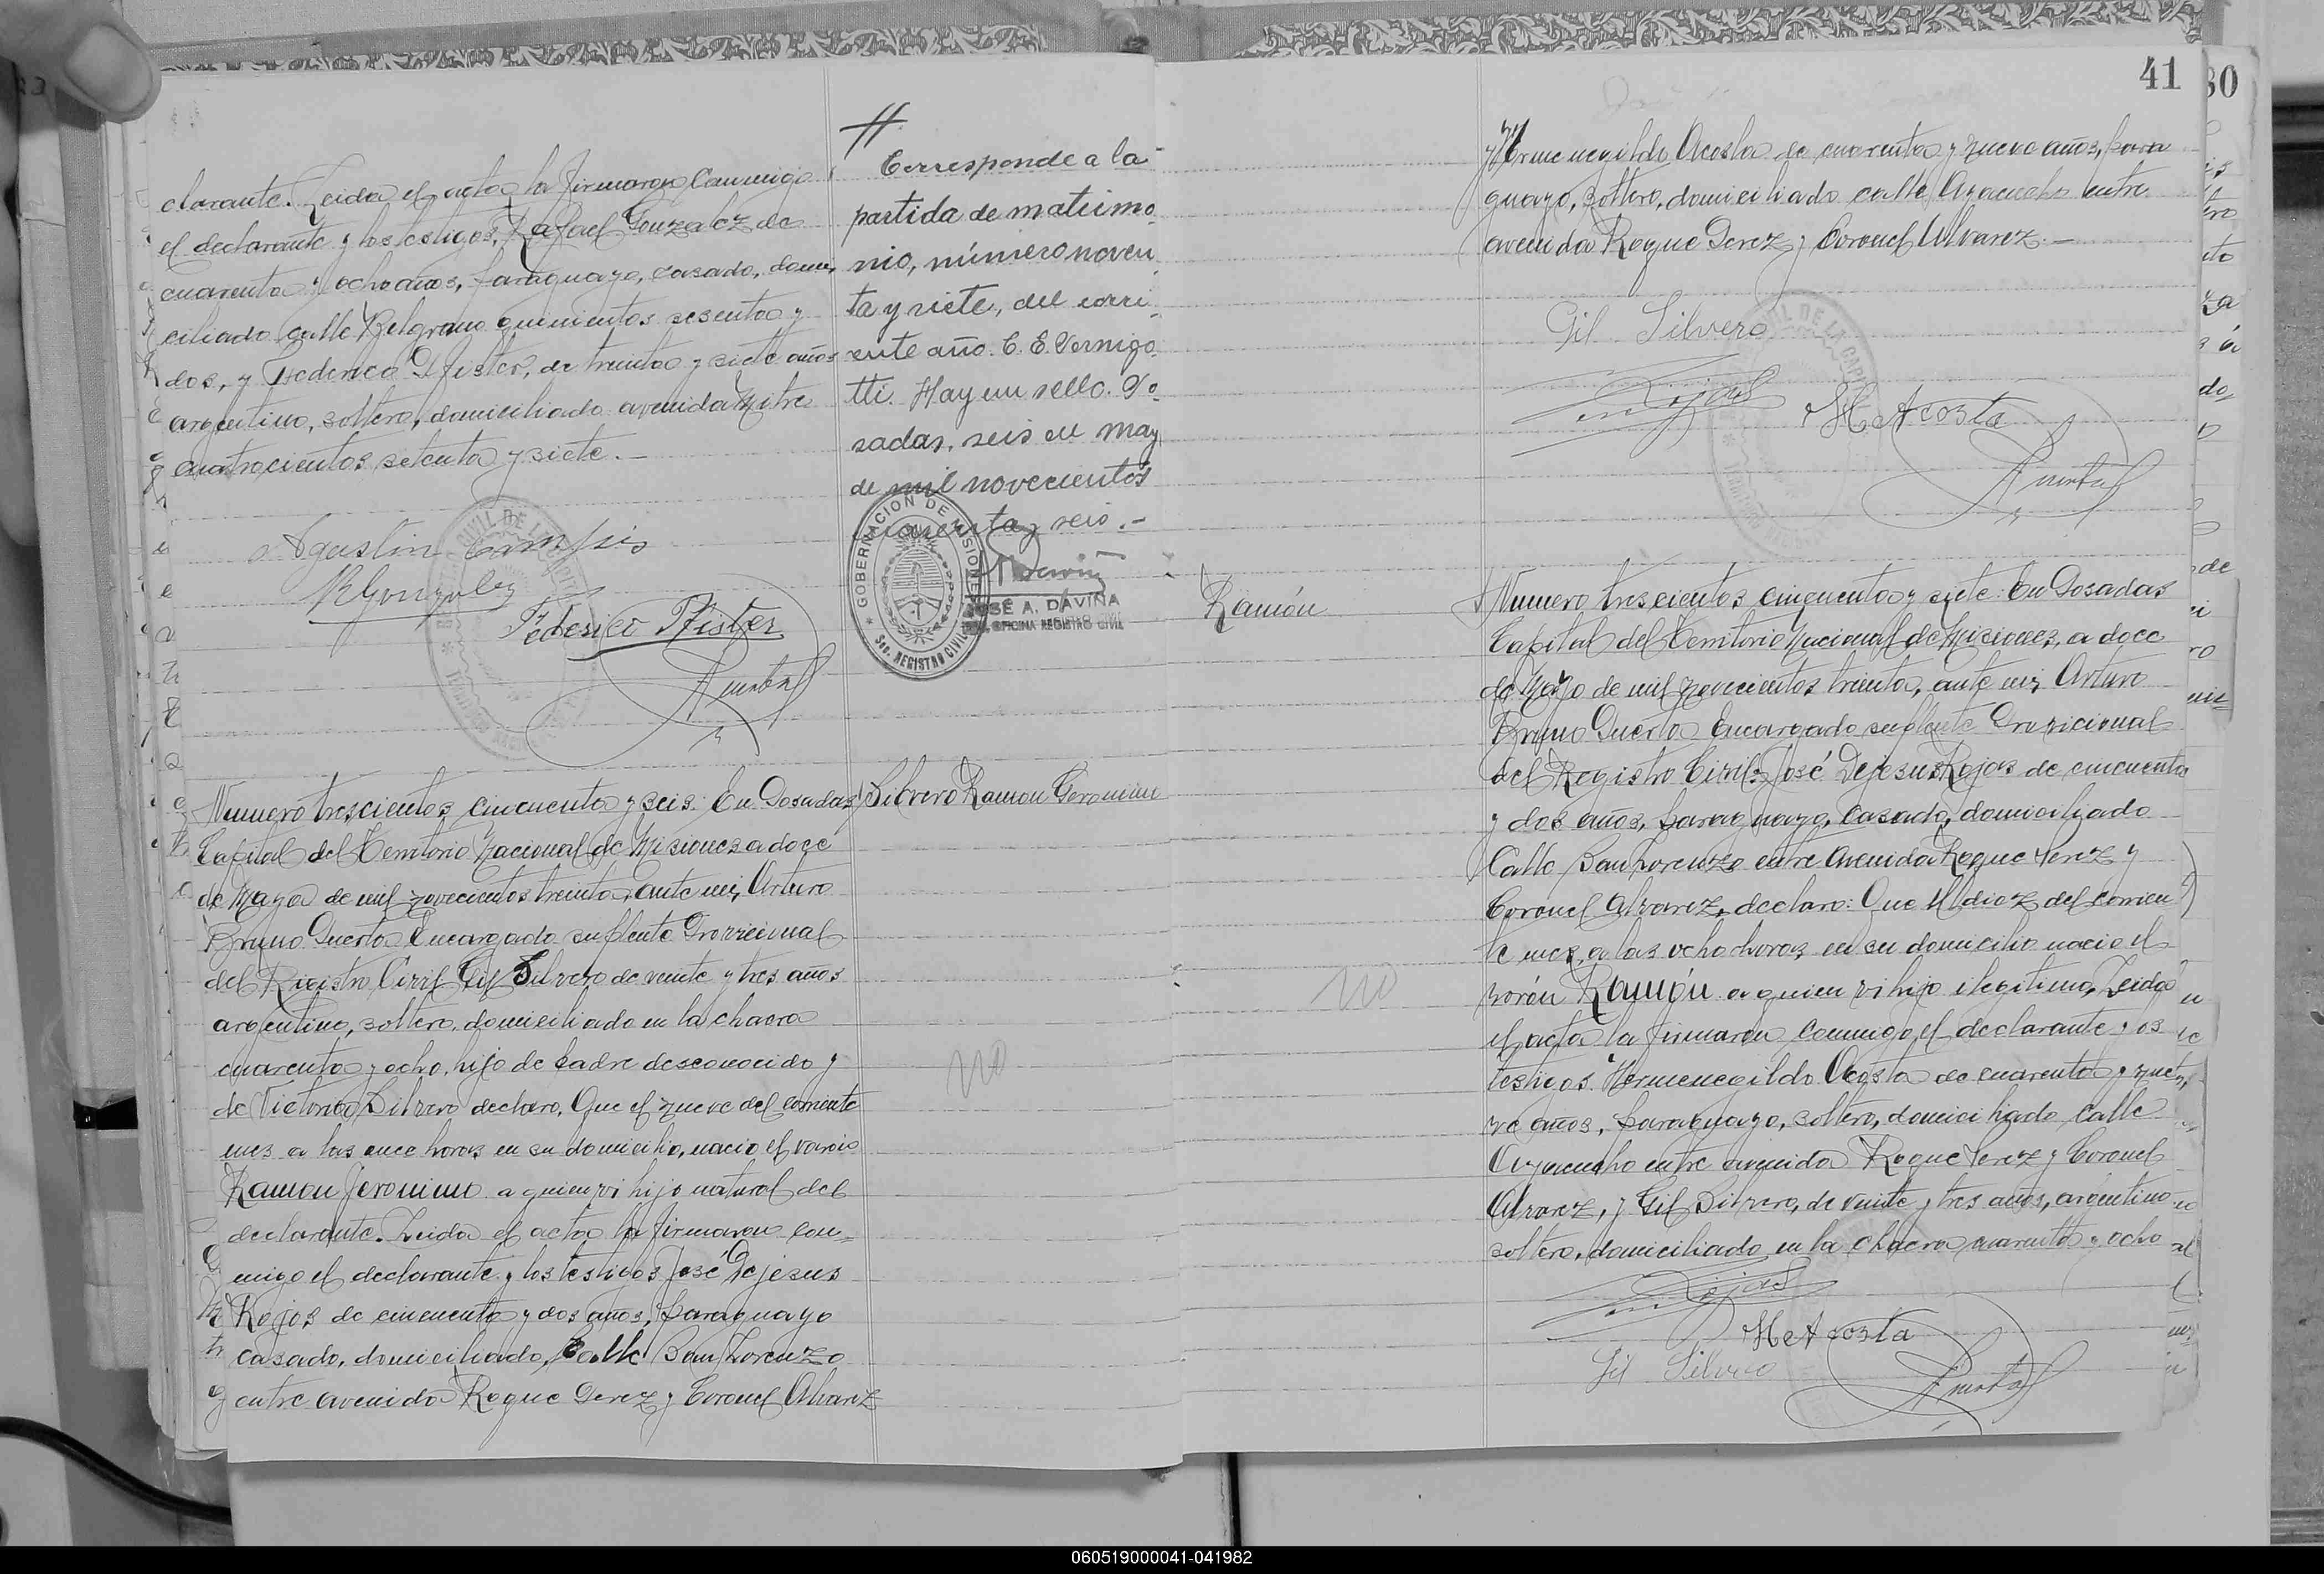 clarante. Leida el acta la firmaron conmigo
el declarante y los testigos, Rafael Gonzalez de
cuarenta y ocho años, paraguayo, casado, domi
ciliado calle Belgrano quinientos sesenta y
dos, y Federico Pfister, de treinta y siete años
argentino, soltero, domiciliado avenida Mitre
cuatrocientos setenta y siete.—
Agustin
RGonzalez
Federico Pfister
Corresponde a la
partida de matrimo
nio, número noven
ta y siete, del corri
ente año. C. E. Vernigo
tti. Hay un sello. Po
sadas, seis de may
de mil novecientos
cuarenta y seis.—
GOBERNACION DE MISIONES
SEC. REGISTRO CIVIL
JOSÉ A. DAVIÑA
OFICINA REGISTRO CIVIL
Numero trescientos cincuenta y seis: En Posadas
Capital del Territorio Nacional de Misiones a doce
de Mayo de mil novecientos treinta, ante mi, Arturo
Bruno Puerta Encargado suplente Provicional
del Registro Civil, Gil Silvero de veinte y tres años
argentino, soltero, domiciliado en la chacra
cuarenta y ocho, hijo de padre desconocido y
de Victoria Silvero declaro, Que el nueve del corriente
mes a las once horas en su domicilio, nacio el varon
Ramon Jeronimo a quien vi hijo natural del
declarante. Leida el acta la firmaron con=
migo el declarante y los testigos José Dejesus
Rojas de cincuenta y dos años, paraguayo
casado, domiciliado, Calle San Lorenzo
entre avenida Roque Perez y Coronel Alvarez
Silvero Ramon Geronimo
no
41
80
y Hermenegildo Acosta de cuarenta y nueve años, para
guayo, soltero, domiciliado calle Ayacucho entre
avenida Roque Perez y Coronel Alvarez.—
Gil Silvero
Rojas
HeAcosta
Ramón
Numero trescientos cincuenta y siete: En Posadas
Capital del Territorio Nacional de Misiones, a doce
de Mayo de mil novecientos treinta, ante mi, Arturo
Bruno Puerta Encargado suplente Provicional
del Registro Civil, José Dejesus Rojas de cincuenta
y dos años, paraguayo, casado, domiciliado
Calle San Lorenzo entre Avenida Roque Perez y
Coronel Alvarez, declaro: Que el diez del corrien
te mes, a las ocho horas en su domicilio nacio el
varón Ramón a quien vi hijo ilegitimo, Leida
el acta la firmaron conmigo, el declarante y os
testigos Hermenegildo Acosta de cuarenta y nue
ve años, paraguayo, soltero, domiciliado calle
Ayacucho entre avenida Roque Perez y Coronel
Alvarez, y Gil Silvero, de veinte y tres años, argentino
soltero, domiciliado en la chacra cuarenta y ocho
no
Rojas
HeAcosta
Gil Silvero
060519000041-041982